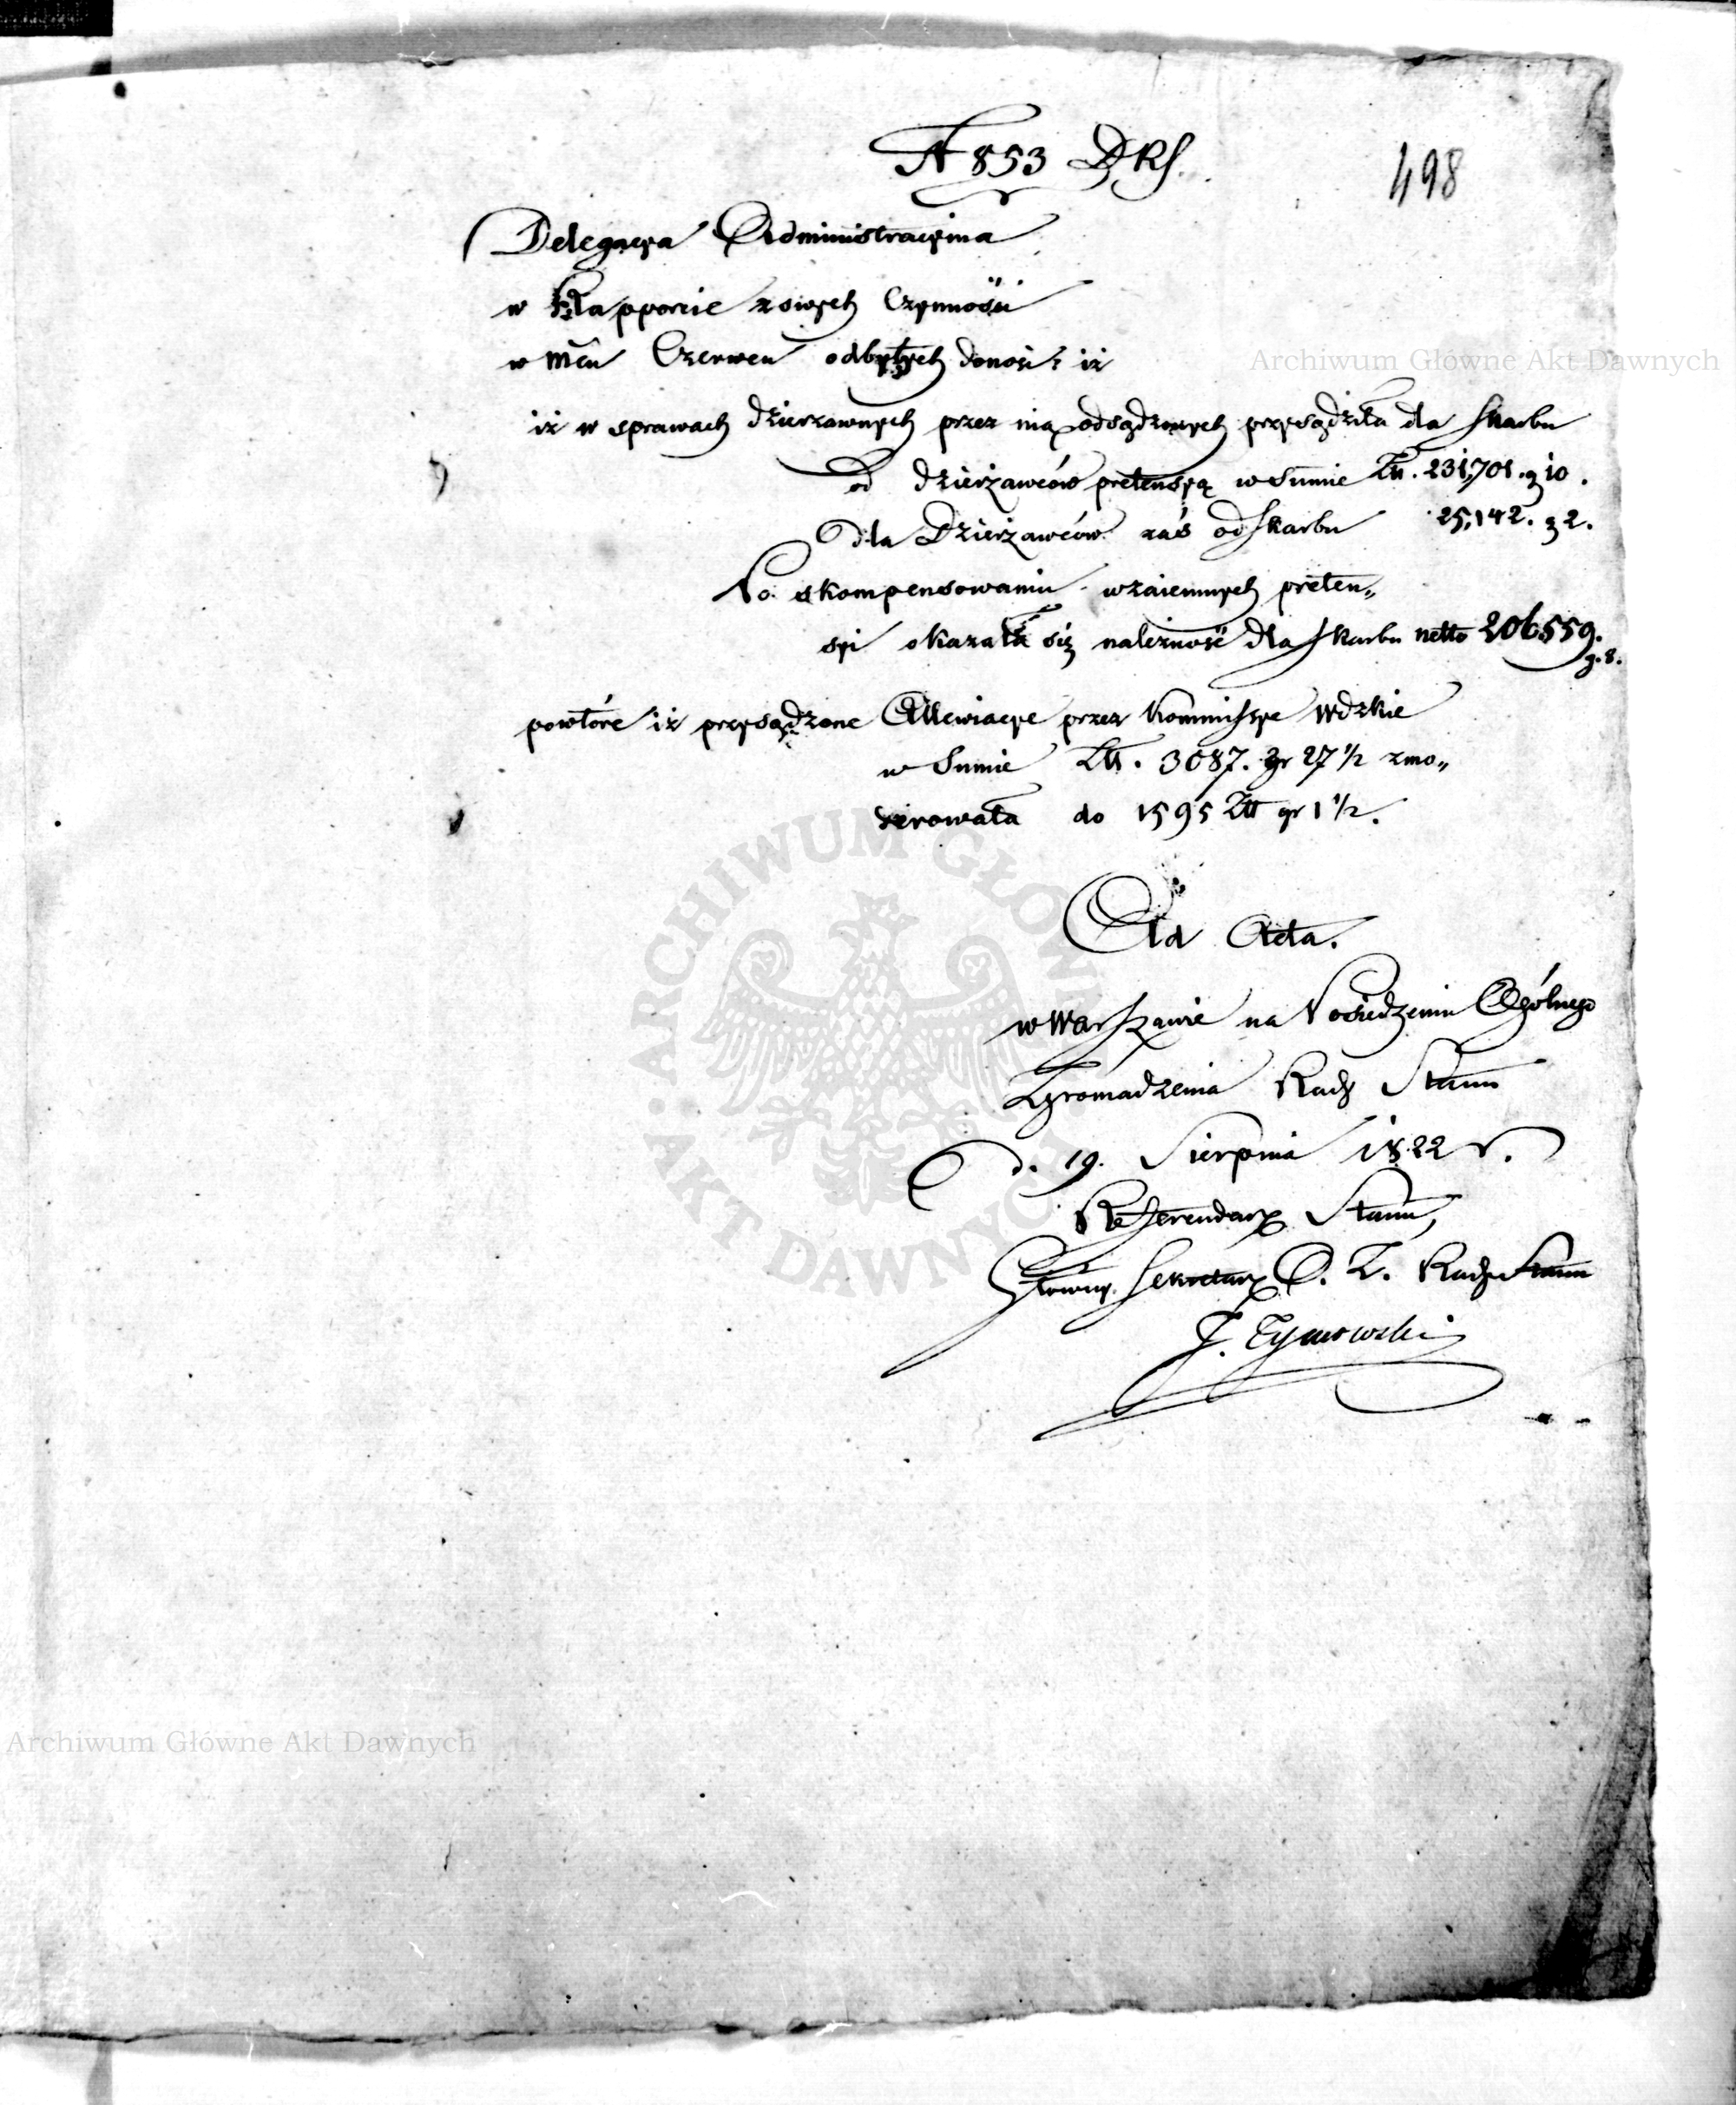 A 853 DRS.
498
Delegacya Administracyina
w Rapporcie z swych Czynności
w mcu Czerwcu odbytych donosi: iż
iż w sprawach dzierzawnych przez nią odsądzonych przysądziła dla skarbu
od dzierżawców pretensyą w Summie Złł. 231,701. g 10.
dla Dzierżawców zaś od skarbu 25,142. g 2.
Po skompensowaniu wzaiemnych preten„
syi okazała się należność dla skarbu netto 206,559.
g. 8.
powtóre iż przysądzone Allewiacye przez Kommissye Wdzkie
w Summie Złł. 3087. gr 27 1/2 zmo„
derowała do 1595 Złł gr 1 1/2.
Ad Acta.
w Warszawie na Posiedzeniu Ogólnego
Zgromadzenia Rady Stanu
d. 19. Sierpnia 1822 r.
Referendarz Stanu,
Główny Sekretarz O. Z. Rady Stanu
J. Tymowski
Archiwum Główne Akt Dawnych
ARCHIWUM GŁÓWNE AKT DAWNYCH
Archiwum Główne Akt Dawnych